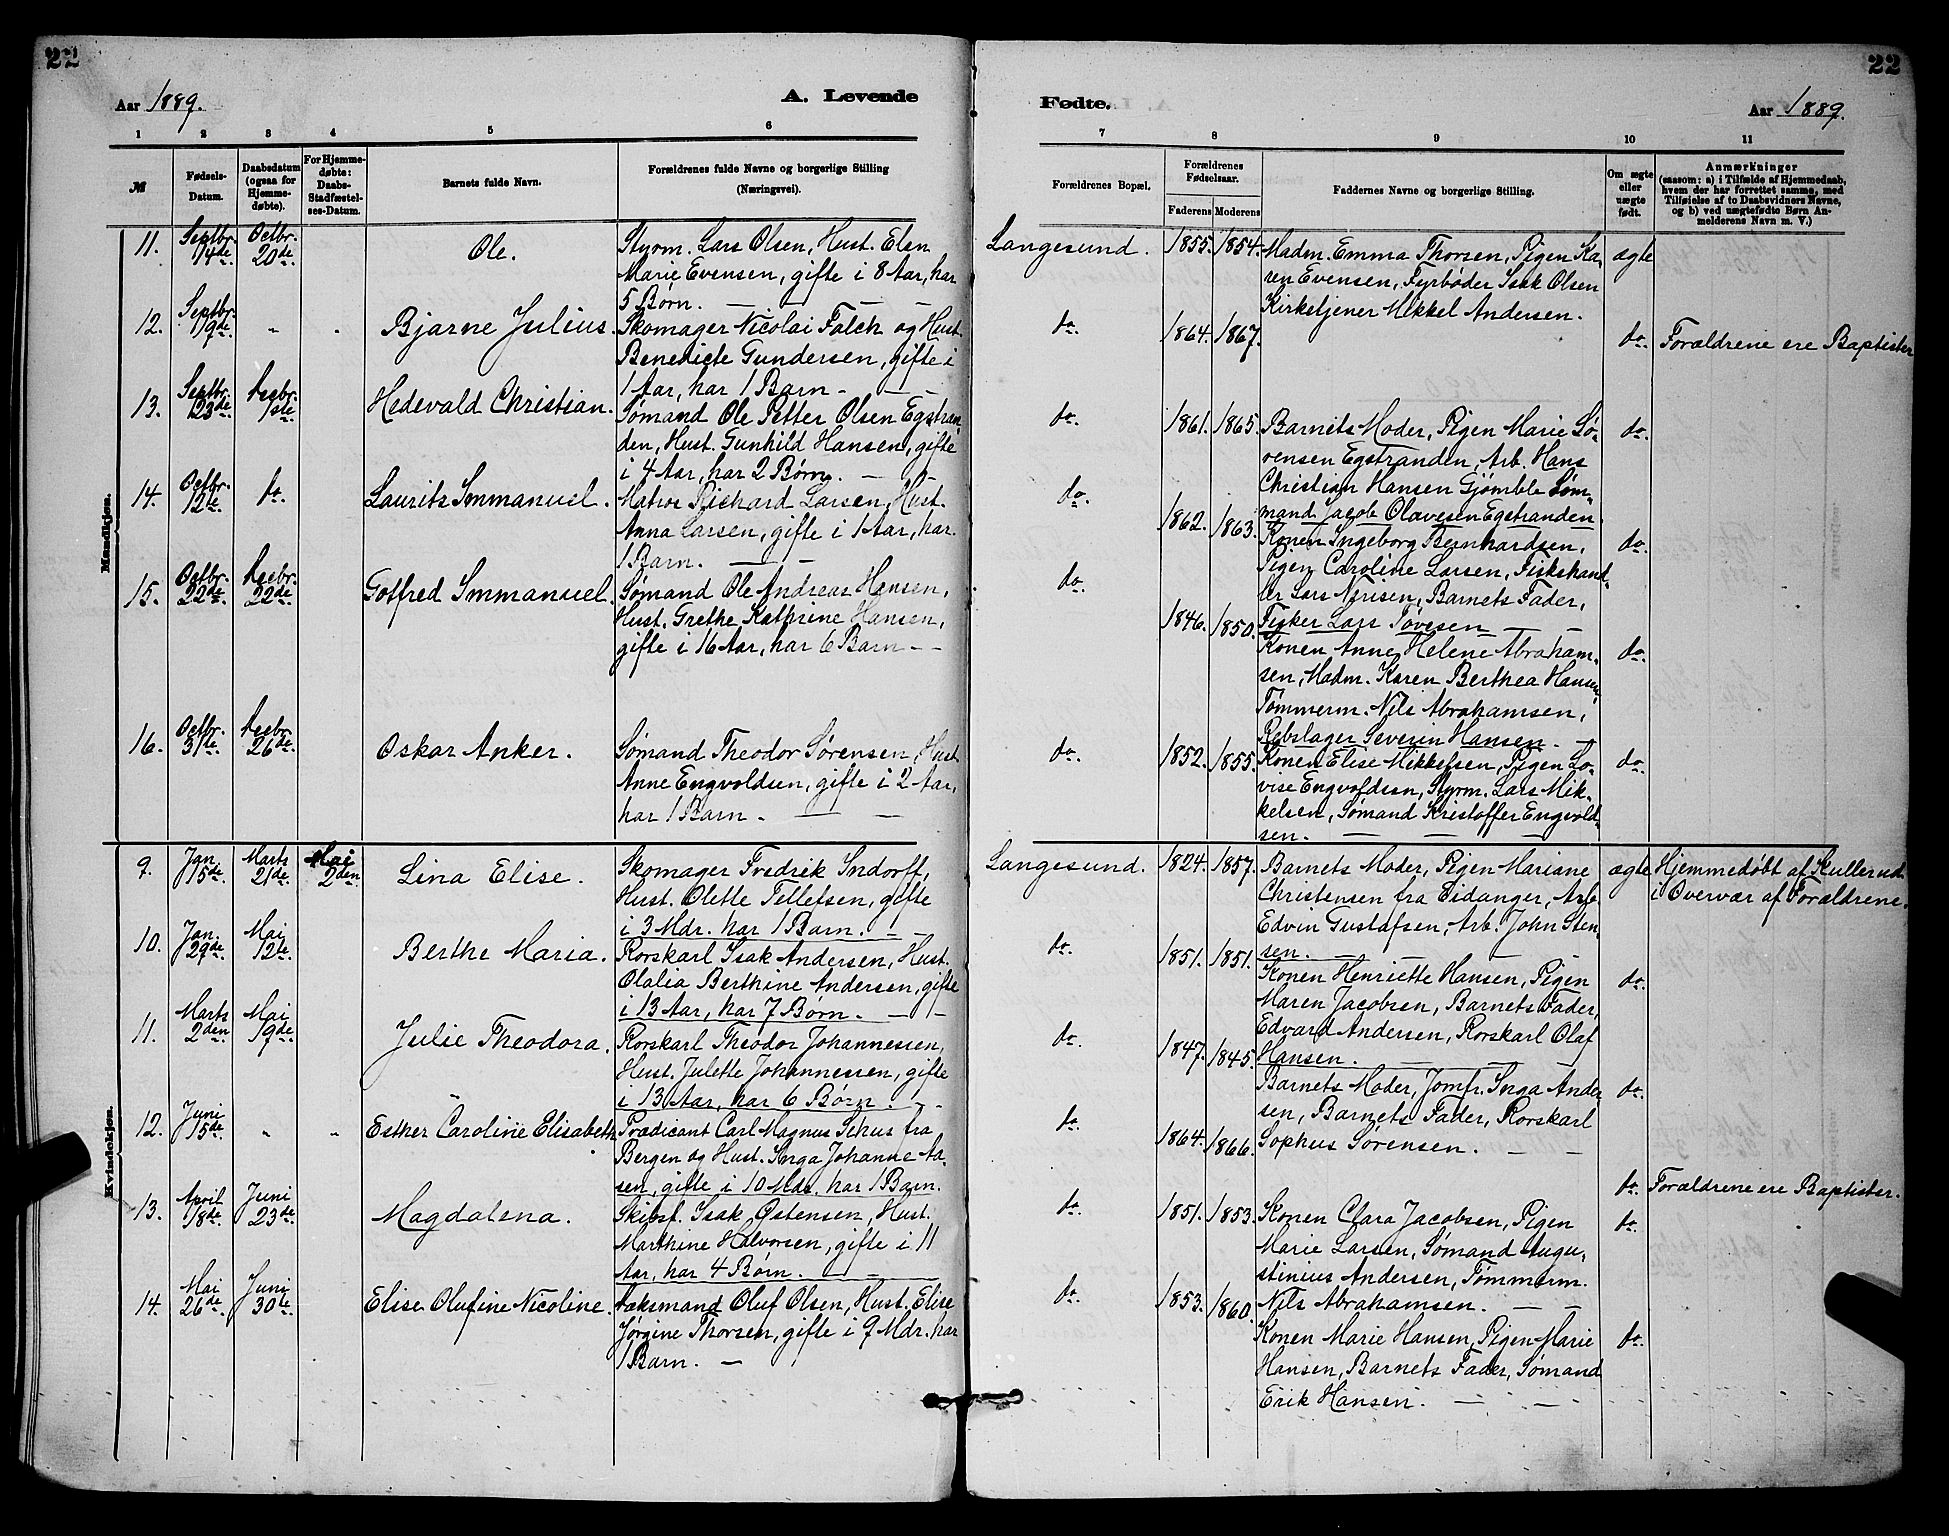 22
22
Aar 1889.
A. Levende
Fødte.
Aar 1889.
1 2 3 4 5 6 7 8 9 10 11
№
Fødsels-Datum.
Daabsdatum (ogsaa for Hjemmedøbte).
For Hjemmedøbte: Daabs-Stadfæstelses-Datum.
Barnets fulde Navn.
Forældrenes fulde Navne og borgerlige Stilling (Næringsvei).
Forældrenes Bopæl.
Forældrenes Fødselsaar.
Faderens Moderens
Faddernes Navne og borgerlige Stilling.
Om ægte eller uægte født.
Anmærkninger
(saasom: a) i Tilfælde af Hjemmedaab, hvem der har forrettet samme, med Tilføielse af to Daabsvidners Navne, og b) ved uægtefødte Børn Anmelderens Navn m. V.)
Mandkjøn.
11. Septbr. 14de. Octbr. 20de. Ole.
Styrm. Lars Olsen, Hust. Elen
Marie Evensen, gifte i 8 Aar, har
5 Børn. — —
Langesund. 1855. 1854.
Madm. Emma Thorsen, Pigen Ka-
ren Evensen, Fyrbøder Isak Olsen
Kirketjener Mikkel Andersen.
ægte
12. Septbr. 19de. " " Bjarne Julius.
Skomager Nicolai Falck og Hust.
Benedicte Gundersen, gifte i
1 Aar, har 1 Barn — — —
do. 1864. 1867. do. Forældrene ere Baptister
13. Septbr. 23de. Decbr. 1ste Hedevald Christian.
Sømand Ole Petter Olsen Egstran-
den, Hust. Gunhild Hansen, gifte
i 4 Aar, har 2 Børn. — —
do. 1861. 1865.
Barnets Moder, Pigen Marie Sø-
rensen Egstranden, Arb. Hans
Christian Hansen Gjømble Søm-
mand Jacob Olavesen Egstranden
do.
14. Octbr. 12te. do. Laurits Immanuel.
Matros Richard Larsen, Hust.
Anna Larsen, gifte i 1 Aar, har
1 Barn. — —
do. 1862. 1863.
Konen Ingeborg Bernhardsen,
Pigen Caroline Larsen, Fiskehand-
ler Lars Nerisen, Barnets Fader,
Fisker Lars Tovesen — —
do.
15. Octbr. 22de. Decbr. 22de. Gotfred Immanuel.
Sømand Ole Andreas Hansen,
Hust. Grethe Kathrine Hansen,
gifte i 16 Aar, har 6 Barn — —
do. 1846. 1850.
Konen Anne Helene Abraham-
sen, Madm. Karen Berthea Hansen
Tømmerm. Nils Abrahamsen,
Rebslager Severin Hansen. —
do.
16. Octbr. 31te. Decbr. 26de. Oskar Anker.
Sømand Theodor Sørensen, Hust.
Anne Engvoldsen, gifte i 2 Aar,
har 1 Barn. — —
do. 1852. 1855.
Konen Elise Mikkelsen, Pigen Lo-
vise Engvoldsen, Styrm. Lars Mik-
kelsen, Sømand Kristoffer Engvold-
sen. — — —
do.
Kvindekjøn.
9. Jan. 15de. Marts 21de. Mai 2den. Lina Elise.
Skomager Fredrik Indorff,
Hust. Olette Tellefsen, gifte
i 3 Mdr. har 1 Barn. — —
Langesund. 1824. 1857.
Barnets Moder, Pigen Mariane
Christensen fra Eidanger, Arb.
Edvin Gustafsen, Arb. John Sten-
sen. — —
ægte Hjemmedøbt af Kullerud
i Overvær af Forældrene.
10. Jan. 29de. Mai 12te. Berthe Maria.
Rorskarl Isak Andersen, Hust.
Olalia Berthine Andersen, gifte
i 13 Aar, har 7 Børn. — —
do. 1851. 1851.
Konen Henriette Hansen, Pigen
Maren Jacobsen, Barnets Fader,
Edvard Andersen, Rorskarl Olaf
Hansen. — — —
do.
11. Marts 2den Mai 19de. Julie Theodora.
Rorskarl Theodor Johannessen,
Hust. Julette Johannessen, gifte
i 13 Aar, har 6 Børn. — —
do. 1847. 1845.
Barnets Moder, Jomfr. Inga Ander-
sen, Barnets Fader, Rorskarl
Sophus Sørensen. — —
do.
12. Juni 15de. " " Esther Caroline Elisabeth
Prædicant Carl Magnus Sehus fra
Bergen og Hust. Inga Johanne Aa-
sen, gifte i 10 Mdr. har 1 Barn.
do. 1864. 1866. do. Forældrene ere Baptister.
13. April 18de. Juni 23de. Magdalena.
Skibsf. Isak Østensen, Hust.
Marthine Halvorsen, gifte i 11
Aar, har 4 Børn. — —
do. 1851. 1853.
Konen Clara Jacobsen, Pigen
Marie Larsen, Sømand Augu-
stinius Andersen, Tømmerm.
Nils Abrahamsen. — —
do.
14. Mai 26de. Juni 30te. Elise Olufine Nicoline.
Dæksmand Oluf Olsen, Hust. Elise
Jørgine Thorsen, gifte i 9 Mdr. har
1 Barn. —
do. 1853. 1860.
Konen Marie Hansen, Pigen Marie
Hansen, Barnets Fader, Sømand
Erik Hansen. — —
do.